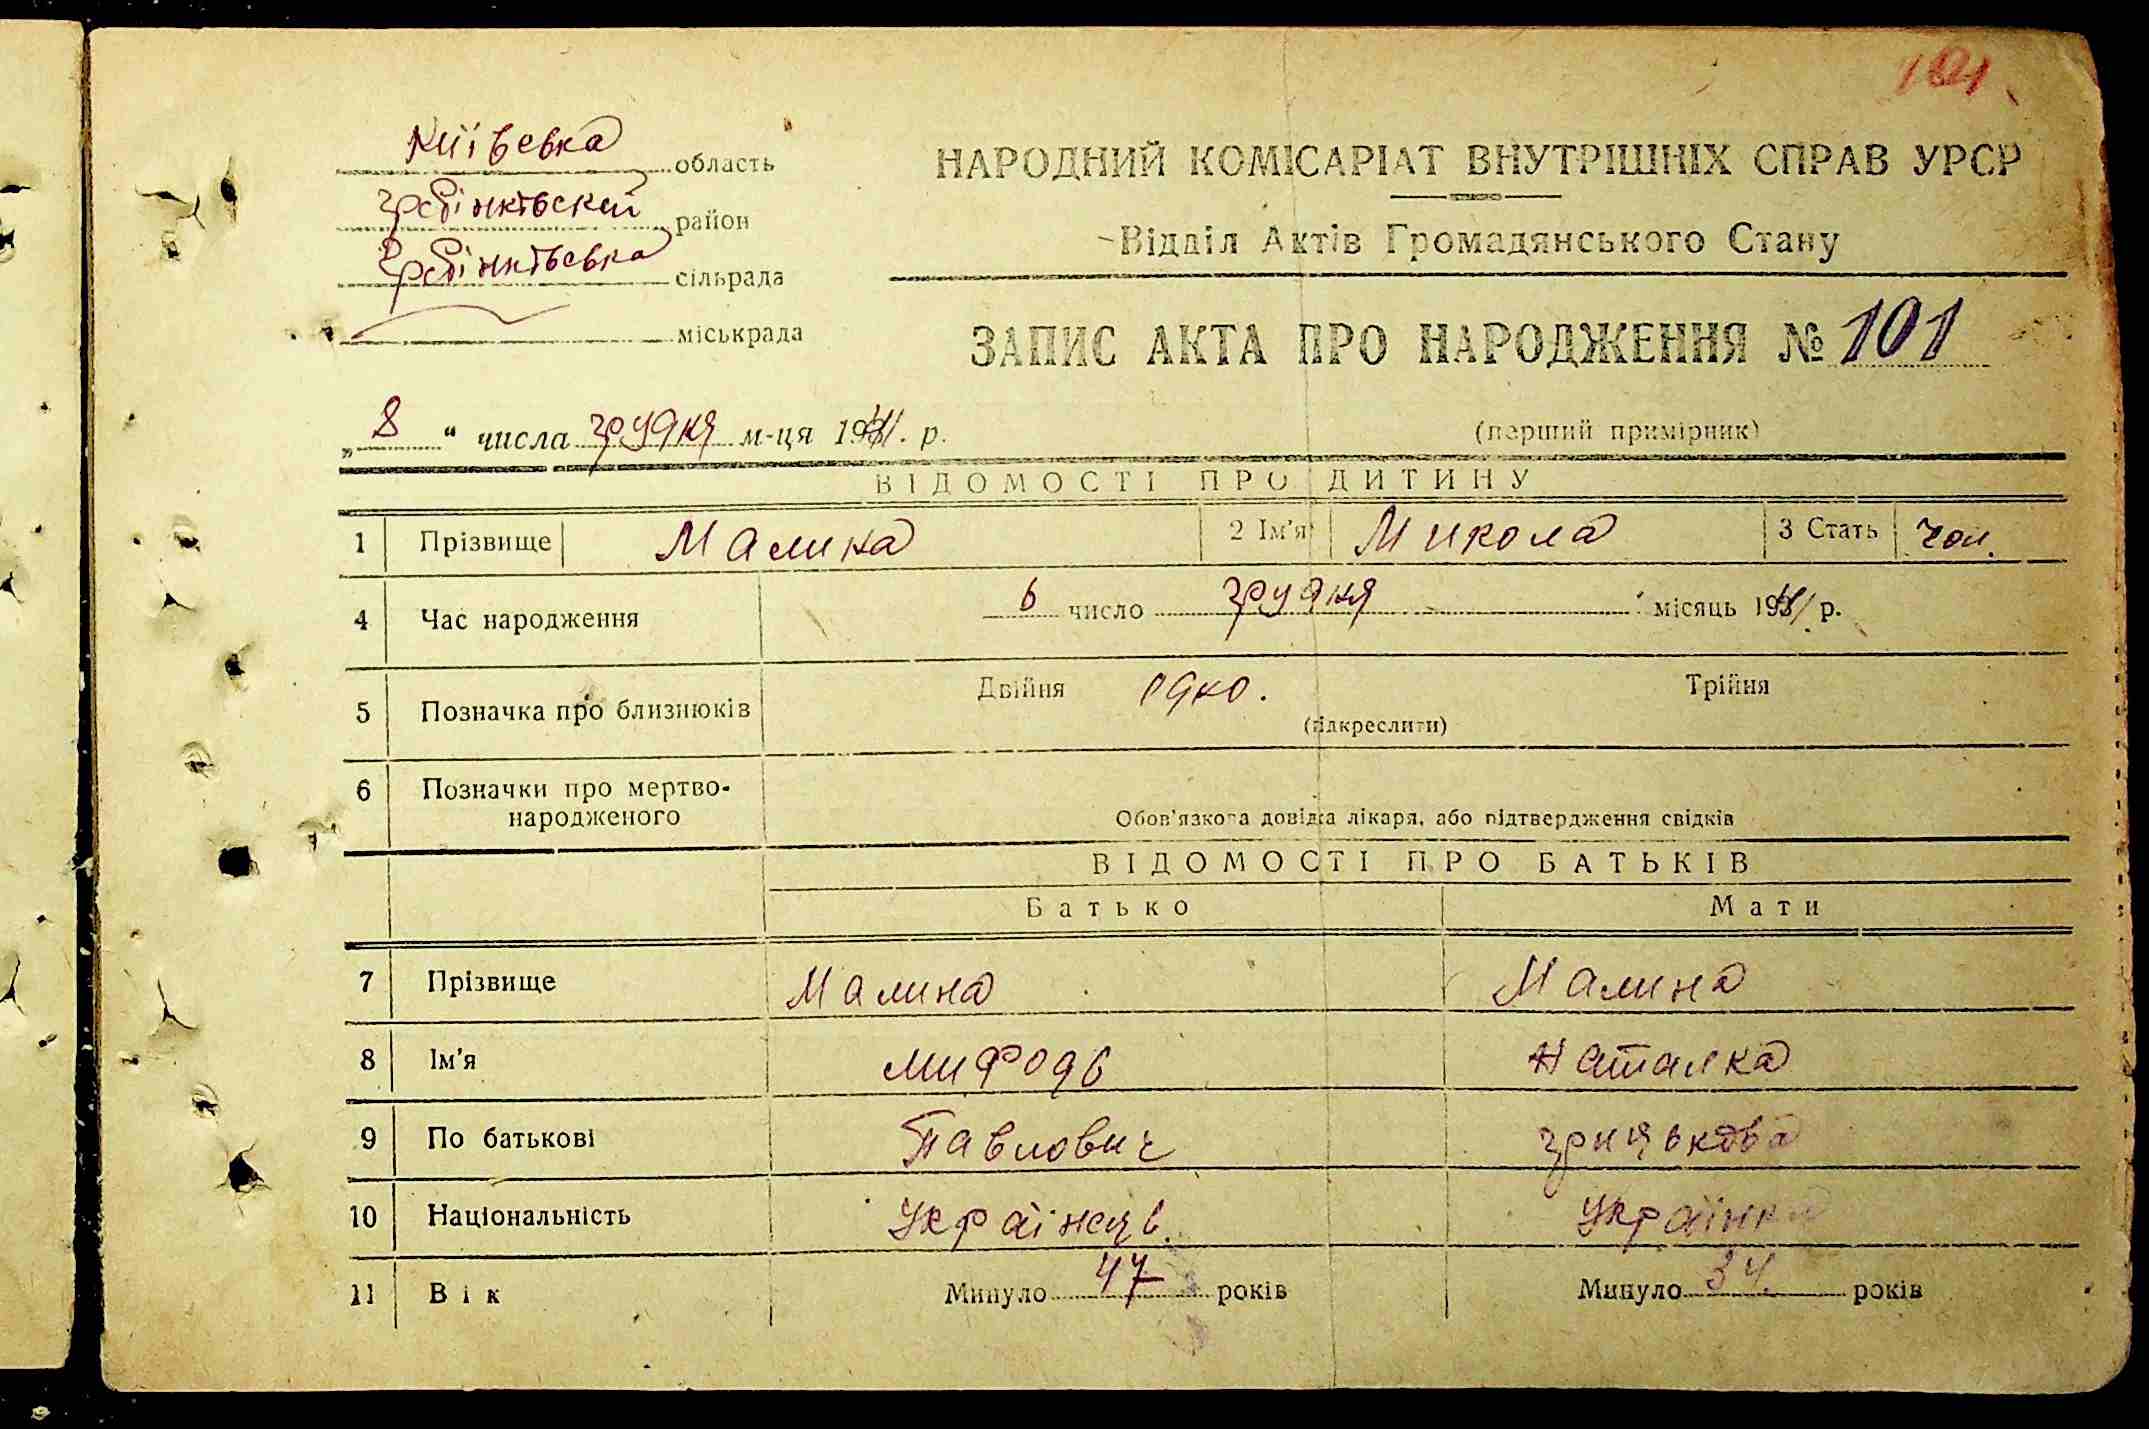 101
Київська область
гребінківский район
Гребінківська сільрада
міськрада
НАРОДНИЙ КОМІСАРІАТ ВНУТРІШНІХ СПРАВ УРСР
Відділ Актів Громадянського Стану
ЗАПИС АКТА ПРО НАРОДЖЕННЯ № 101
„8“ числа грудня м-ця 1941. р.
(перший примірник)
ВІДОМОСТІ ПРО ДИТИНУ
1 Прізвище Малина 2 Ім'я Микола 3 Стать чол.
4 Час народження 6 число грудня місяць 1941 р.
5 Позначка про близнюків Двійня одно. Трійня
(підкреслити)
6 Позначки про мертво-
народженого
Обов'язкова довідка лікаря, або підтвердження свідків
ВІДОМОСТІ ПРО БАТЬКІВ
Батько Мати
7 Прізвище Малина Малина
8 Ім'я Мифодь Наталка
9 По батькові Павлович грицькова
10 Національність Українець. Українка
11 Вік Минуло 47 років Минуло 34. років